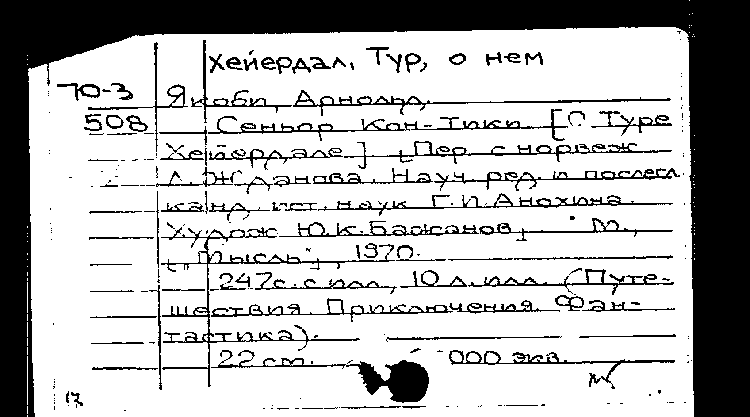 Хейердал, Тур, о нем
70-3 Якоби, Арнольд.
508 Сеньор Кон-Тики [О Туре
Хейердале] [Пер. с норвеж.
Л. Жданова. Науч. ред. и послесл.
канд. ист. наук Г.И. Анохина.
Худож. Ю.К. Бажанов] М.,
["Мысль"], 1970.
247 с. с илл., 10 л. илл. (Путе-
шествия. Приключения. Фан-
тастика).
22 см. 000 экз.
17